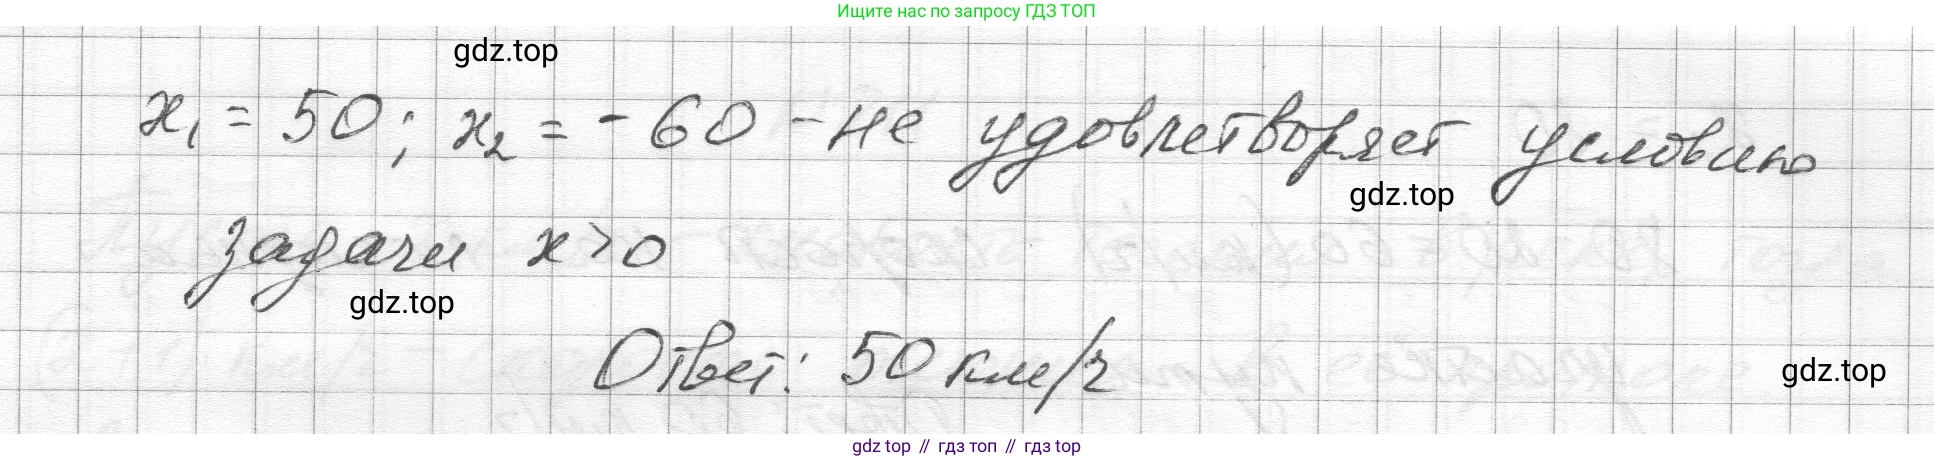 Ищите нас по запросу ГДЗ ТОП
gdz.top
x₁ = 50; x₂ = - 60 - не удовлетворяет условию
gdz.top
задачи x > 0
gdz.top
Ответ: 50 км/ч
gdz.top
gdz top // гдз топ // gdz top